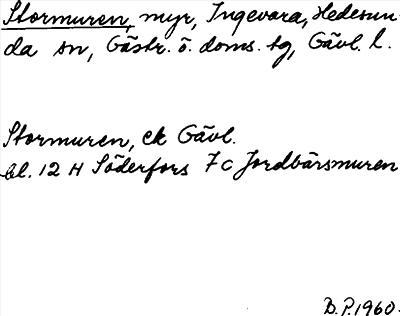 Stormuren, myr, Ingevara, Hedesun-
da sn, Gästr. ö. doms. tg, Gävl. l.
Stormuren, ek Gävl.
bl. 12 H Söderfors 7 c Jordbärsmuren
B.P. 1960.